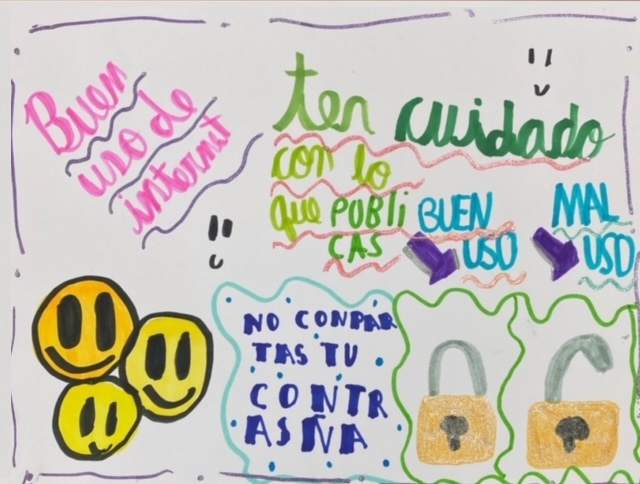 Buen
uso de
internet
ten cuidado
con lo
que PUBLi
CAS
BUEN
USO
MAL
USO
NO CONPAR
TAS TU
CONTR
ASÑA